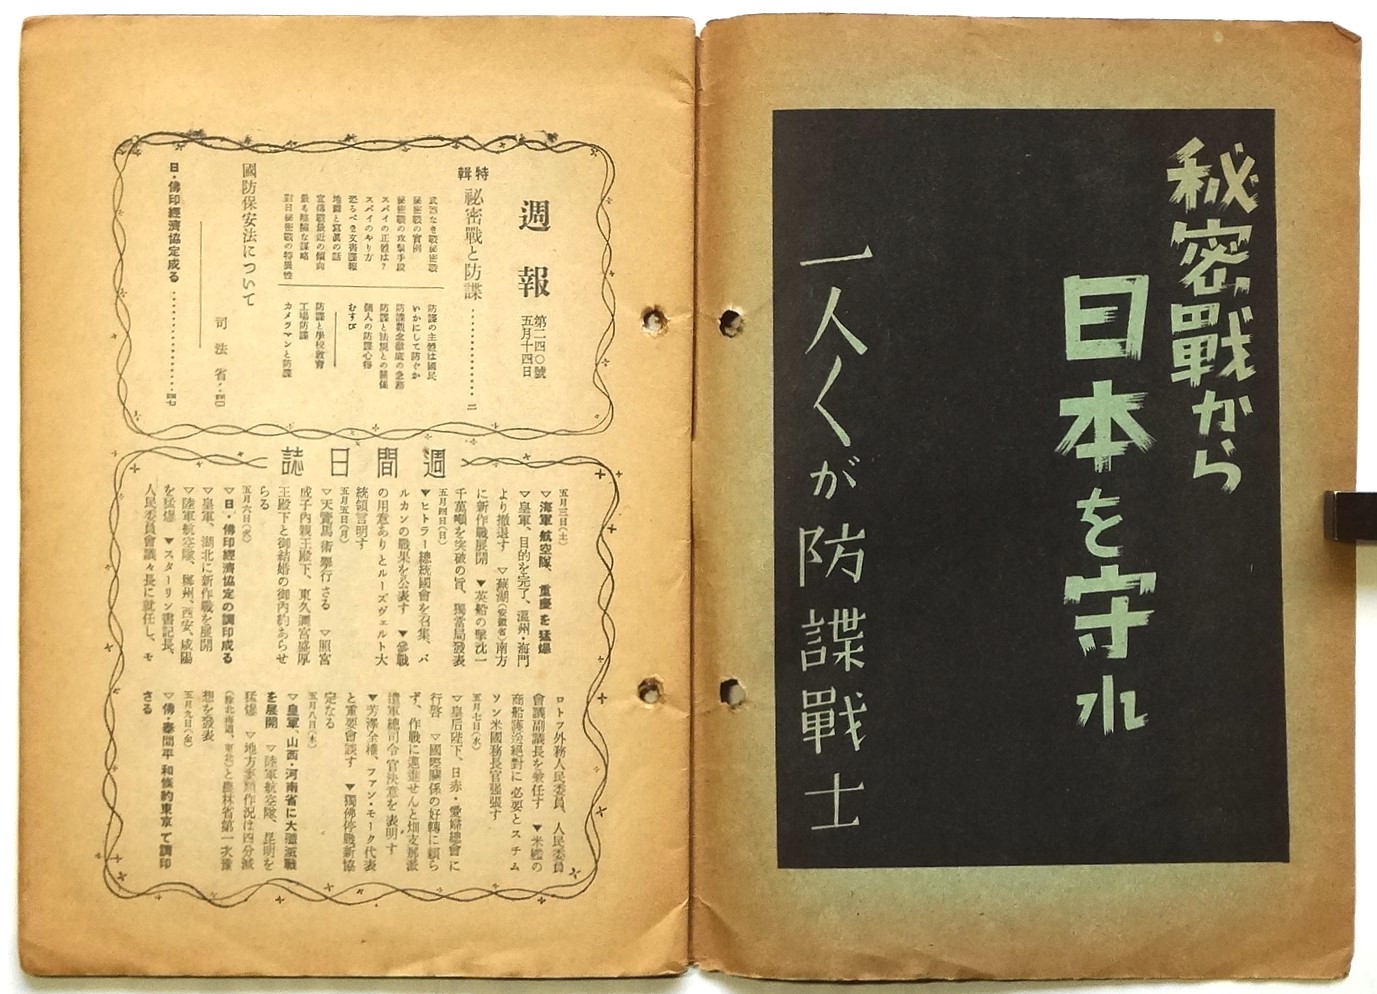 秘密戰から
日本を守れ
一人〱が防諜戰士
週報
第二四〇號
五月十四日
特輯
祕密戰と防諜
二
武器なき戰祕密戰
祕密戰の實例
祕密戰の攻擊手段
スパイの正體は?
スパイのやり方
恐るべき文書諜報
地圖と寫眞の話
宣傳戰最近の傾向
最も陰險な謀略
對日祕密戰の特異性
防諜の主體は國民
いかにして防ぐか
防諜觀念徹底の急務
防諜と法規との關係
個人の防諜心得
むすび
防諜と學校敎育
工場防諜
カメラマンと防諜
國防保安法について
司法省
日・佛印經濟協定成る
週間日誌
五月三日(土)
▽海軍航空隊、重慶を猛爆
▽皇軍、目的を完了、溫州・海門
より撤退す ▽蕪湖(安徽省)南方
に新作戰展開 ▼英船の擊沈一
千萬噸を突破の旨、獨當局發表
五月四日(日)
▼ヒトラー總統國會を召集、バ
ルカンの戰果を公表す ▼參戰
の用意ありとルーズヴェルト大
統領言明す
五月五日(月)
▽天覽馬術擧行さる ▽照宮
成子內親王殿下、東久邇宮盛厚
王殿下と御結婚の御內約あらせ
らる
五月六日(火)
▽日・佛印經濟協定の調印成る
▽皇軍、湖北に新作戰を展開
▽陸軍航空隊、鄭州、西安、咸陽
を猛爆 ▼スターリン書記長、
人民委員會議々長に就任し、モ
ロトフ外務人民委員、人民委員
會議副議長を兼任す ▼米艦の
商船護送絕對に必要とスチム
ソン米國務長官强張す
五月七日(水)
▽皇后陛下、日赤・愛婦總會に
行啓 ▽國際關係の好轉に賴ら
ず、作戰に邁進せんと畑支那派
遣軍總司令官決意を表明す
▼芳澤全權、ファン・モーク代表
と重要會談す ▼獨佛停戰新協
定なる
五月八日(木)
▽皇軍、山西・河南省に大殲滅戰
を展開 ▽陸軍航空隊、昆明を
猛爆 ▽地方麥類作況は四分減
(除北海道、東北)と農林省第一次豫
想を發表
五月九日(金)
▽佛・泰間平和條約東京で調印
さる